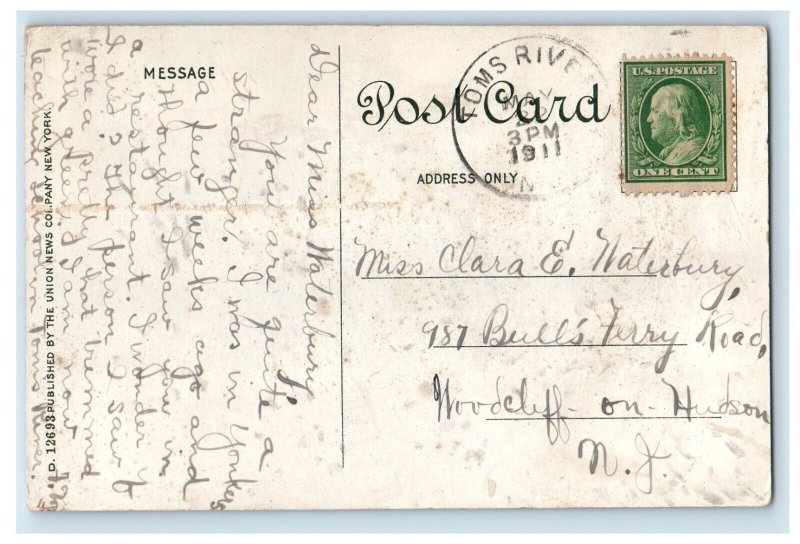 MESSAGE
Post Card
ADDRESS ONLY
TOMS RIVER
MAY
3 PM
1911
N
U.S. POSTAGE
ONE CENT
Miss Clara E. Waterbury,
987 Bull's Ferry Road,
Woodcliff-on-Hudson
N. J.
Dear Miss Waterbury,
You are quite a
stranger. I was in Yonkers
a few weeks ago and
thought I saw you in
a restaurant. I wonder if
I did? The person I saw
wore a pretty hat trimmed
with green. I am now
teaching
D. 12693 PUBLISHED BY THE UNION NEWS COMPANY NEW YORK.